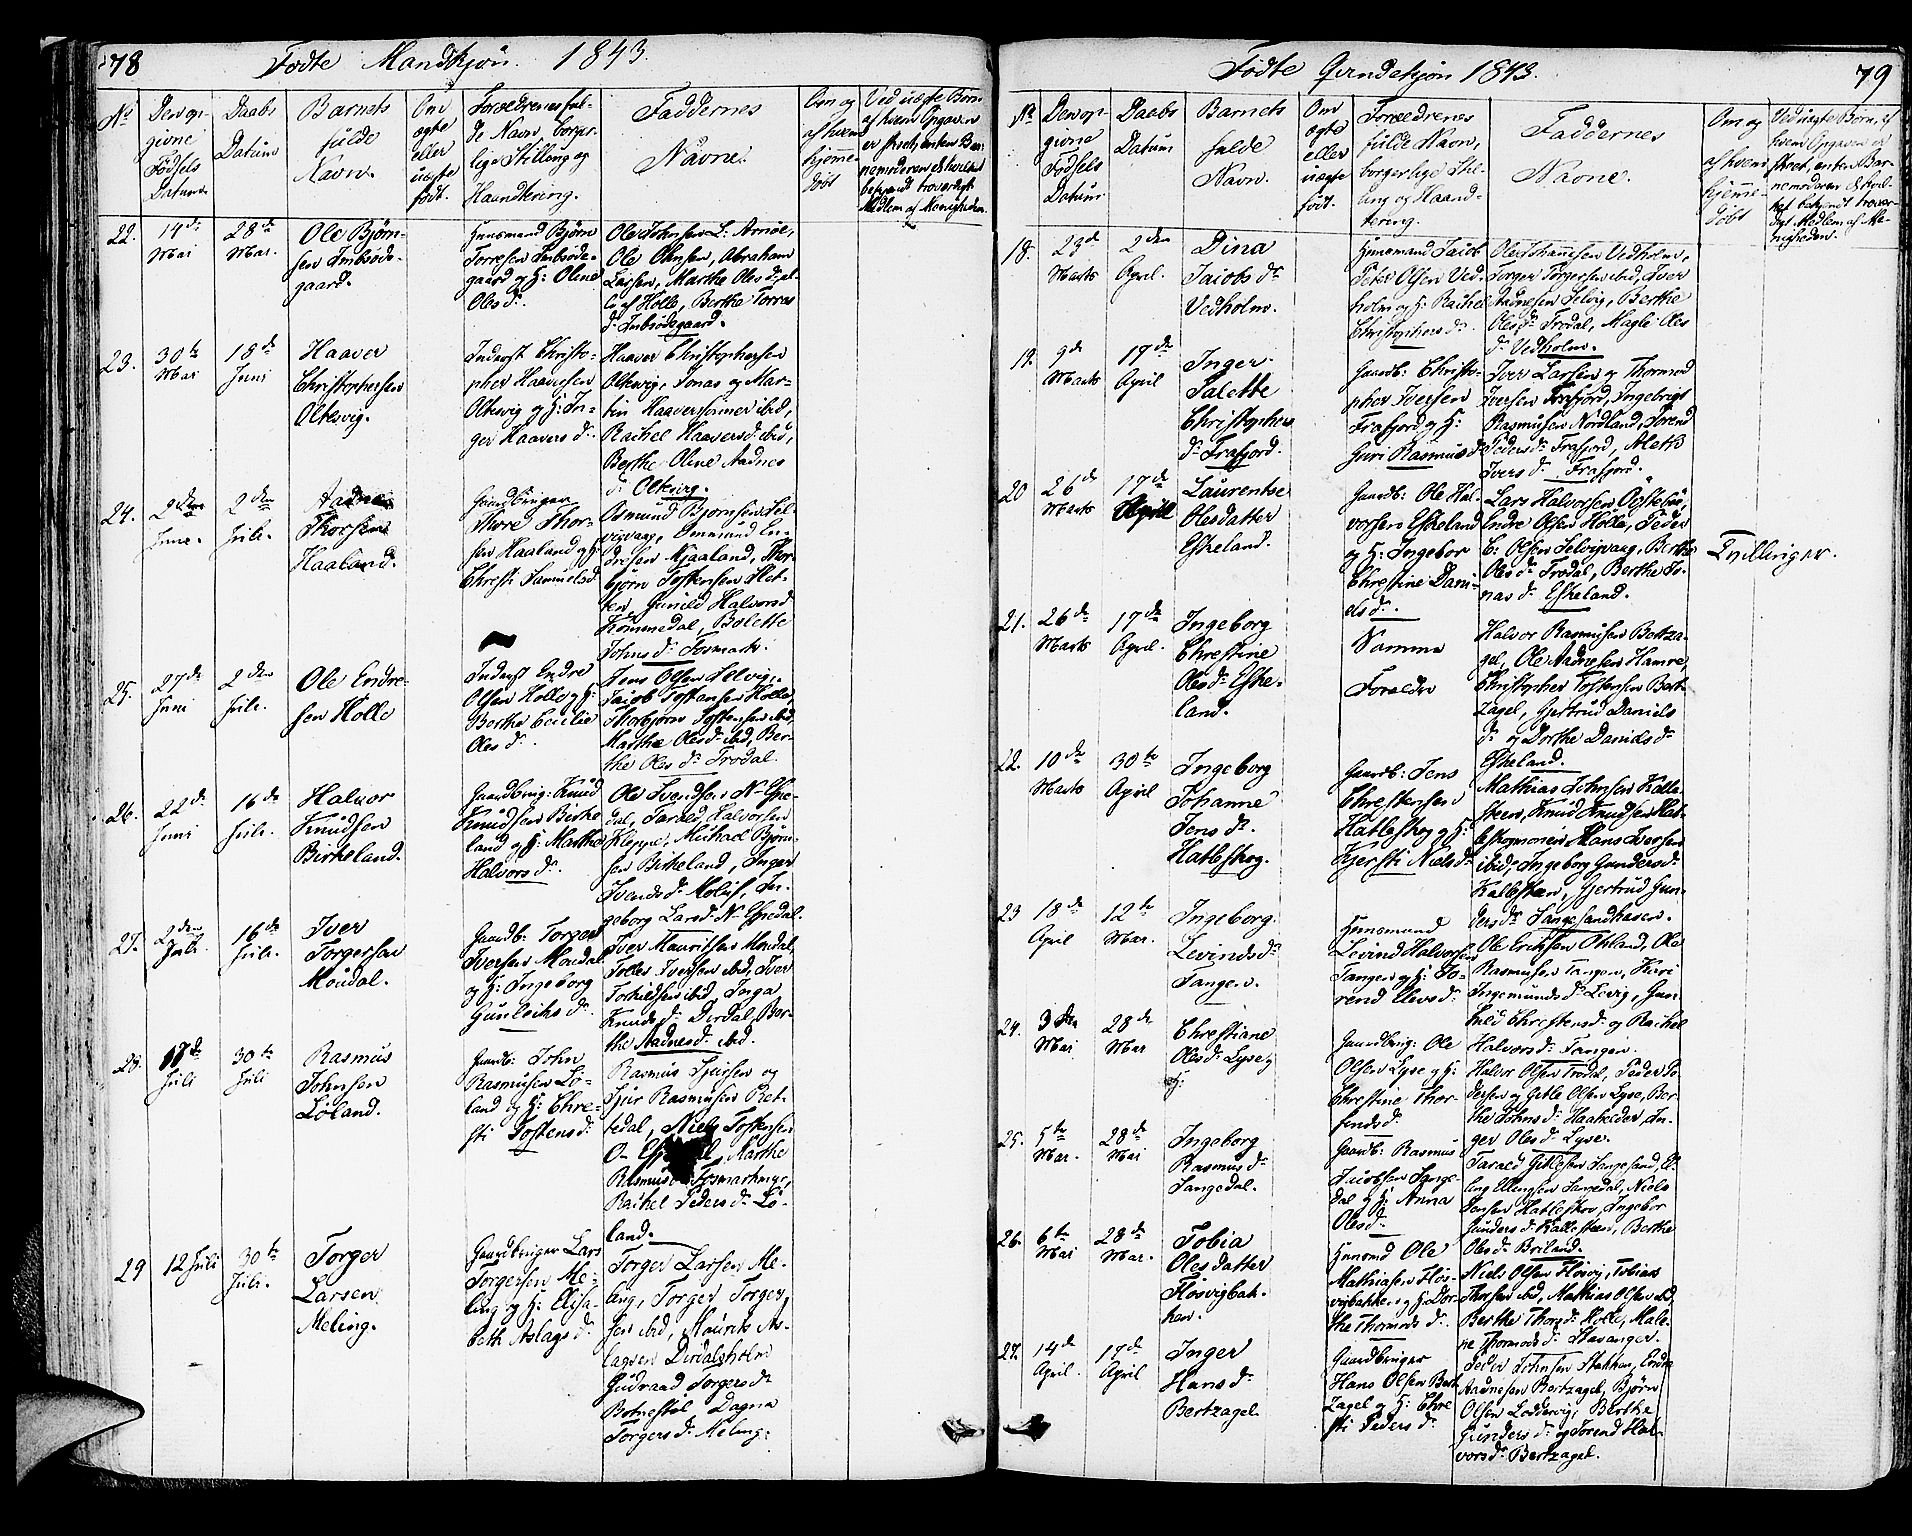 78
Fødte Mandkjøn. 1843.
No
Den op-
givne
Fødsels
Datum
Daabs
Datum
Barnets
fulde
Navn.
Om
ægte
eller
uægte
født.
Forældrenes ful-
de Navn, borger-
lige Stilling og
Haandtering.
Faddernes
Navne.
Om og
af hvem
hjemme-
døbt
Ved uægte Børn,
af hvem Opgaven
er skeet, enten Bar-
nemoderen
bekjendt troværdigt
Medlem af Menigheden.
22.
14de
Mai
28de
Mai.
Ole Bjørn-
sen Indsøde-
gaard.
Huusmand Bjørn
Torresen Indsøde-
gaard og H: Oline
Oles dr.
Ole Johnsen L: Arnøe,
Ole Olnsen, Abraham
Larsen, Marthe Oles dr al-
le af Holle, Berthe Torres
dr Indsødegaard.
23.
30te
Mai
18de
Juni
Haaver
Christophersen
Oltesvig.
Inderst Christo-
pher Haaversen
Oltesvig og H: In-
ger Haavers dr.
Haaver Christophersen
Oltesvig, Jonas og Mar-
tin Haaversønner ibid,
Rachel Haavers dr ibid,
Berthe Oline Aadnes
dr Oltesvig.
24.
2den
Juni.
2den
Juli.
Aadne
Thorsen
Haaland.
Gaardbruger
Thore Thor-
sen Haaland og H:
Christi Samuels d
Osmund Bjørnsen Sel-
vigvaag, Ommund En-
dresen Njaaland, Thor-
bjørn Tostensen Slet-
ten, Gunild Halvors d
Kommedal, Bolette
Johns dr Fosmark.
25.
27de
Juni
2den
Juli.
Ole Endre-
sen Holle
Inderst Endre
Olsen Holle og H:
Berthe Cecilie
Oles dr.
Jens Olsen Selvig,
Jacob Tostensen Holle
Thorbjørn Tostensen ibid,
Marthe Oles dr ibid, Ber-
the Oles dr Frodal.
26.
22de
Juni
16de
Juli.
Halvor
Knudsen
Birkeland.
Gaardbrug: Knud
Knudsen Birke
land og H: Marthe
Halvors dr.
Ole Svendsen N Espe-
dal, Tarald Halvorsen
Kleppe, Michael Bjørn-
sen Birkeland, Inger
Svends dr Molis, In-
geborg Lars d N Espedal.
27.
2den
Juli.
16de
Juli.
Iver
Torgersen
Moudal.
Gaardb: Torger
Iversen Moudal
og H: Ingeborg
Gunleiks dr
Iver Mauritsen Moudal,
Tollev Iversen ibid, Iver
Torkildsen ibid, Inga
Knuds dr Dirdal, Ber-
the Aadnes dr ibid.
28.
17de
Juli
30te
Juli
Rasmus
Johnsen
Løland.
Gaardb: John
Rasmusen Lø-
land og H: Chre-
sti Tostens dr
Rasmus Sjursen og
Sjur Rasmusen Ret-
tedal, Niels Tostensen
Marthe
Rasmus
Rachel Peders dr Lø-
land.
29
12 Juli
30te
Juli.
Torger
Larsen
Meling.
Gaardbruger Lars
Torgersen Me-
ling og H: Elisa-
beth Aslags dr
Torger Larsen Me-
ling, Torger Torger-
sen ibid, Maurits As-
lagsen Dirdalsholm
Gudraad Torgers dr
Botnestøl Dagna
Torgers dr Meling.
79
Fødte Qvindekjøn 1843.
No
Den op-
givne
Fødsels
Datum
Daabs
Datum
Barnets
fulde
Navn.
Om
ægte
eller
uægte
født.
Forældrenes
fulde Navn,
borgerlige Stil-
ling og Haand-
tering.
Faddernes
Navne.
Om og
af hvem
hjemme-
døbt
Ved uægte Børn, af
hvem Opgaven er
skeet, enten Bar-
nemoderen
bekjendt trovær-
digt Medlem af Me-
nigheden.
18.
23de
Marts
2den
April.
Dina
Jacobs dr
Vedholm.
Huusmand Jacob
Peter Olsen Ved-
holm og H: Rachel
Christophers dr.
Ole Johannesen Vedholm,
Torger Torgersen ibid, Iver
Aadnesen Selvig, Berthe
Oles dr Frodal, Magle Oles
dr Vedholm.
19.
9de
Marts
17de
April
Inger
Salette
Christophers
dr Frafjord.
Gaardb: Christo-
pher Iversen
Frafjord og H:
Guri Rasmus d
Iver Larsen og Thormod
Iversen Frafjord, Ingebrigt
Rasmusen Nordland, Sørend
Peders dr Frafjord, Aleth
Ivers dr Frafjord.
20
26de
Marts
17de
April
Laurentse
Olesdatter
Eskeland.
Gaardb: Ole Hal-
vorsen Eskeland
og H: Ingebor
Christine Dani-
els dr.
Lars Halvorsen Østebø,
Endre Olsen Holle, Peder
C: Olsen Selvigvaag, Berthe
Oles dr Frodal, Berthe Jo-
nas dr Eskeland.
Tvillinger.
21.
26de
Marts
17de
April.
Ingeborg
Christine
Oles dr Eske-
land.
Samme
Forældre
Halvor Rasmusen Bertza-
gel, Ole Aadnesen Hamre,
Christopher Tostensen Bert-
zagel, Gjertrud Daniels
dr og Dorthe Daniels dr
Eskeland.
22.
10de
Marts
30te
April
Ingeborg
Johanne
Jens dr
Hatleskog.
Gaardb: Jens
Christensen
Hatleskog og H:
Kjersti Niels dr
Mathias Johnsen Kalle-
steen, Knud Knudsen Hat-
leskog Hans Iversen
ibid, Ingeborg Gunders dr
Kallesteen, Gjertrud Gun-
ders dr Sangesandhaven.
23
18de
April
12te
Mai.
Ingeborg
Levinds dr
Tangen.
Huusmand
Levind Halvorsen
Tangen og H: To-
rend Elevs dr.
Ole Ericksen Ohland, Ole
Rasmusen Tangen, Kari
Ingemunds dr Levig, Gun-
hild Christens dr og Rachel
Halvors dr Tangen.
24.
3den
Mai
28de
Mai
Christiane
Oles dr Lyse
Gaardbrug: Ole
Olsen Lyse og H:
Christine Thor-
finds d.
Halvor Olsen Frodal, Peder Pe-
dersen og Gitle Olsen Lyse, Ber-
the Johns dr Haaheder, In-
ger Oles dr Lyse.
25.
5te
Mai.
28de
Mai
Ingeborg
Rasmus dr
Sangedal.
Gaardb: Rasmus
Jacobsen Sange-
dal og H: Anna
Oles dr
Tarald Gitlesen Sangesand, El-
ling Ellingsen Sangedal, Niels
Jansen Hatleskog, Ingebor
Gunders dr Kallesteen, Berthe
Oles dr Briland.
26.
6te
Mai
28de
Mai.
Tobia
Olesdatter
Flosvigbak-
ken.
Huusmd Ole
Mathiasen Flos-
vigbakken og H: Dor-
the Thormods dr.
Niels Olsen Flosvig, Tobias
Thorsen ibid, Mathias Olsen ibid
Berthe Thors dr Holle, Male-
ne Thormods dr Stavanger.
27.
14de
April.
17de
April
Inger
Hans dr
Bertzagel
Gaardbruger
Hans Olsen Bert-
zagel og H: Chre-
sti Peders dr.
Peder Johnsen Stakken, Endre
Aadnesen Bertzagel, Bjørn
Olsen Loddervig, Berthe
Gunders dr og Torend Hal-
vors dr Bertzagel.